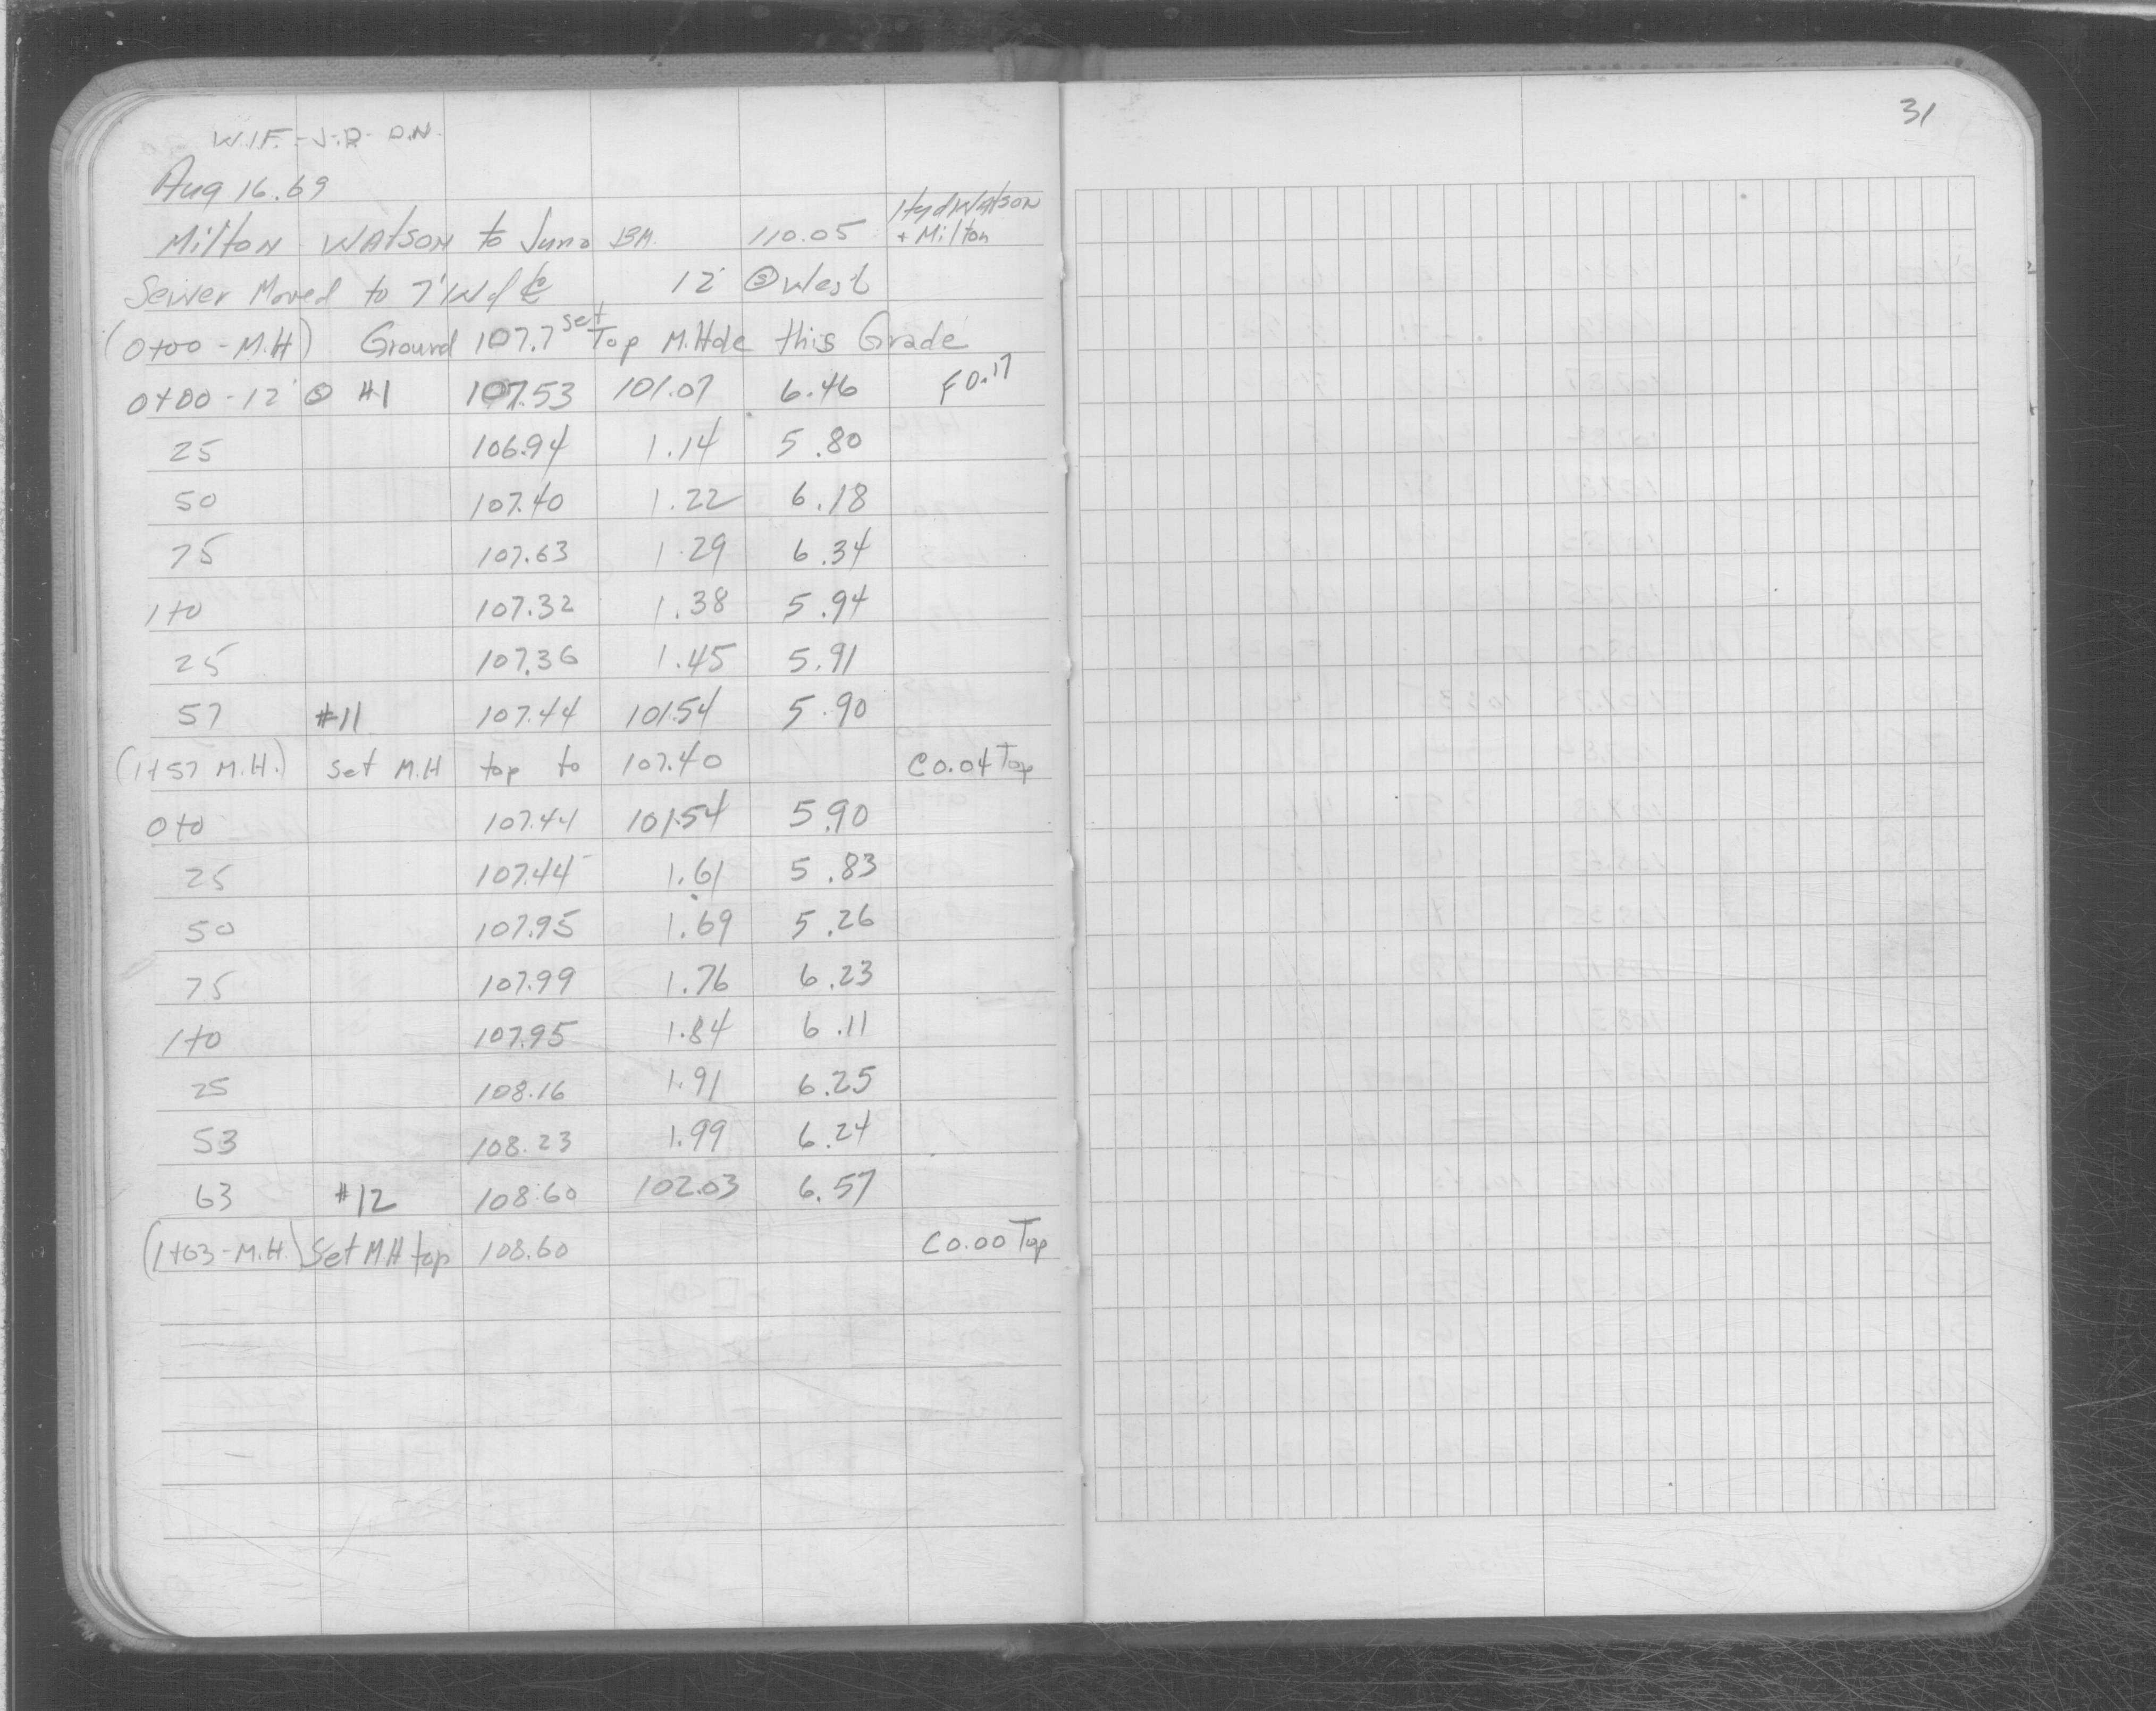 W.I.F. - J.R. D.N.
31
Aug 16. 69
Milton Watson to Juno BM. 110.05 Hyd Watson + Milton
Sewer Moved to 7' W of ℄ 12' Ⓢ West
(0+00 - M.H) Ground 107.7 set Top M.Hole this Grade
0+00 - 12' Ⓢ #1 107.53 101.07 6.46 F 0.17
25 106.94 1.14 5.80
50 107.40 1.22 6.18
75 107.63 1.29 6.34
1+0 107.32 1.38 5.94
25 107.36 1.45 5.91
57 #11 107.44 101.54 5.90
(1+57 M.H.) Set M.H top to 107.40 C 0.04 Top
0+0 107.44 101.54 5.90
25 107.44 1.61 5.83
50 107.95 1.69 5.26
75 107.99 1.76 6.23
1+0 107.95 1.84 6.11
25 108.16 1.91 6.25
53 108.23 1.99 6.24
63 #12 108.60 102.03 6.57
(1+63 - M.H.) Set MH top 108.60 C 0.00 Top